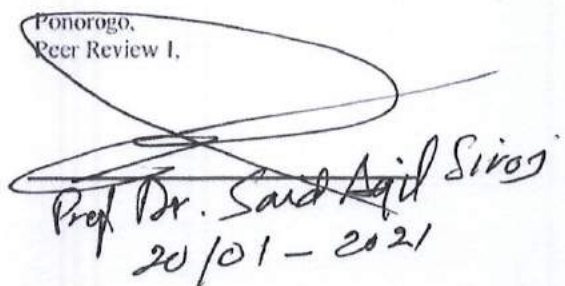 Ponorogo,
Peer Review I,
Prof Dr. Said Aqil Siroj
20/01 - 2021